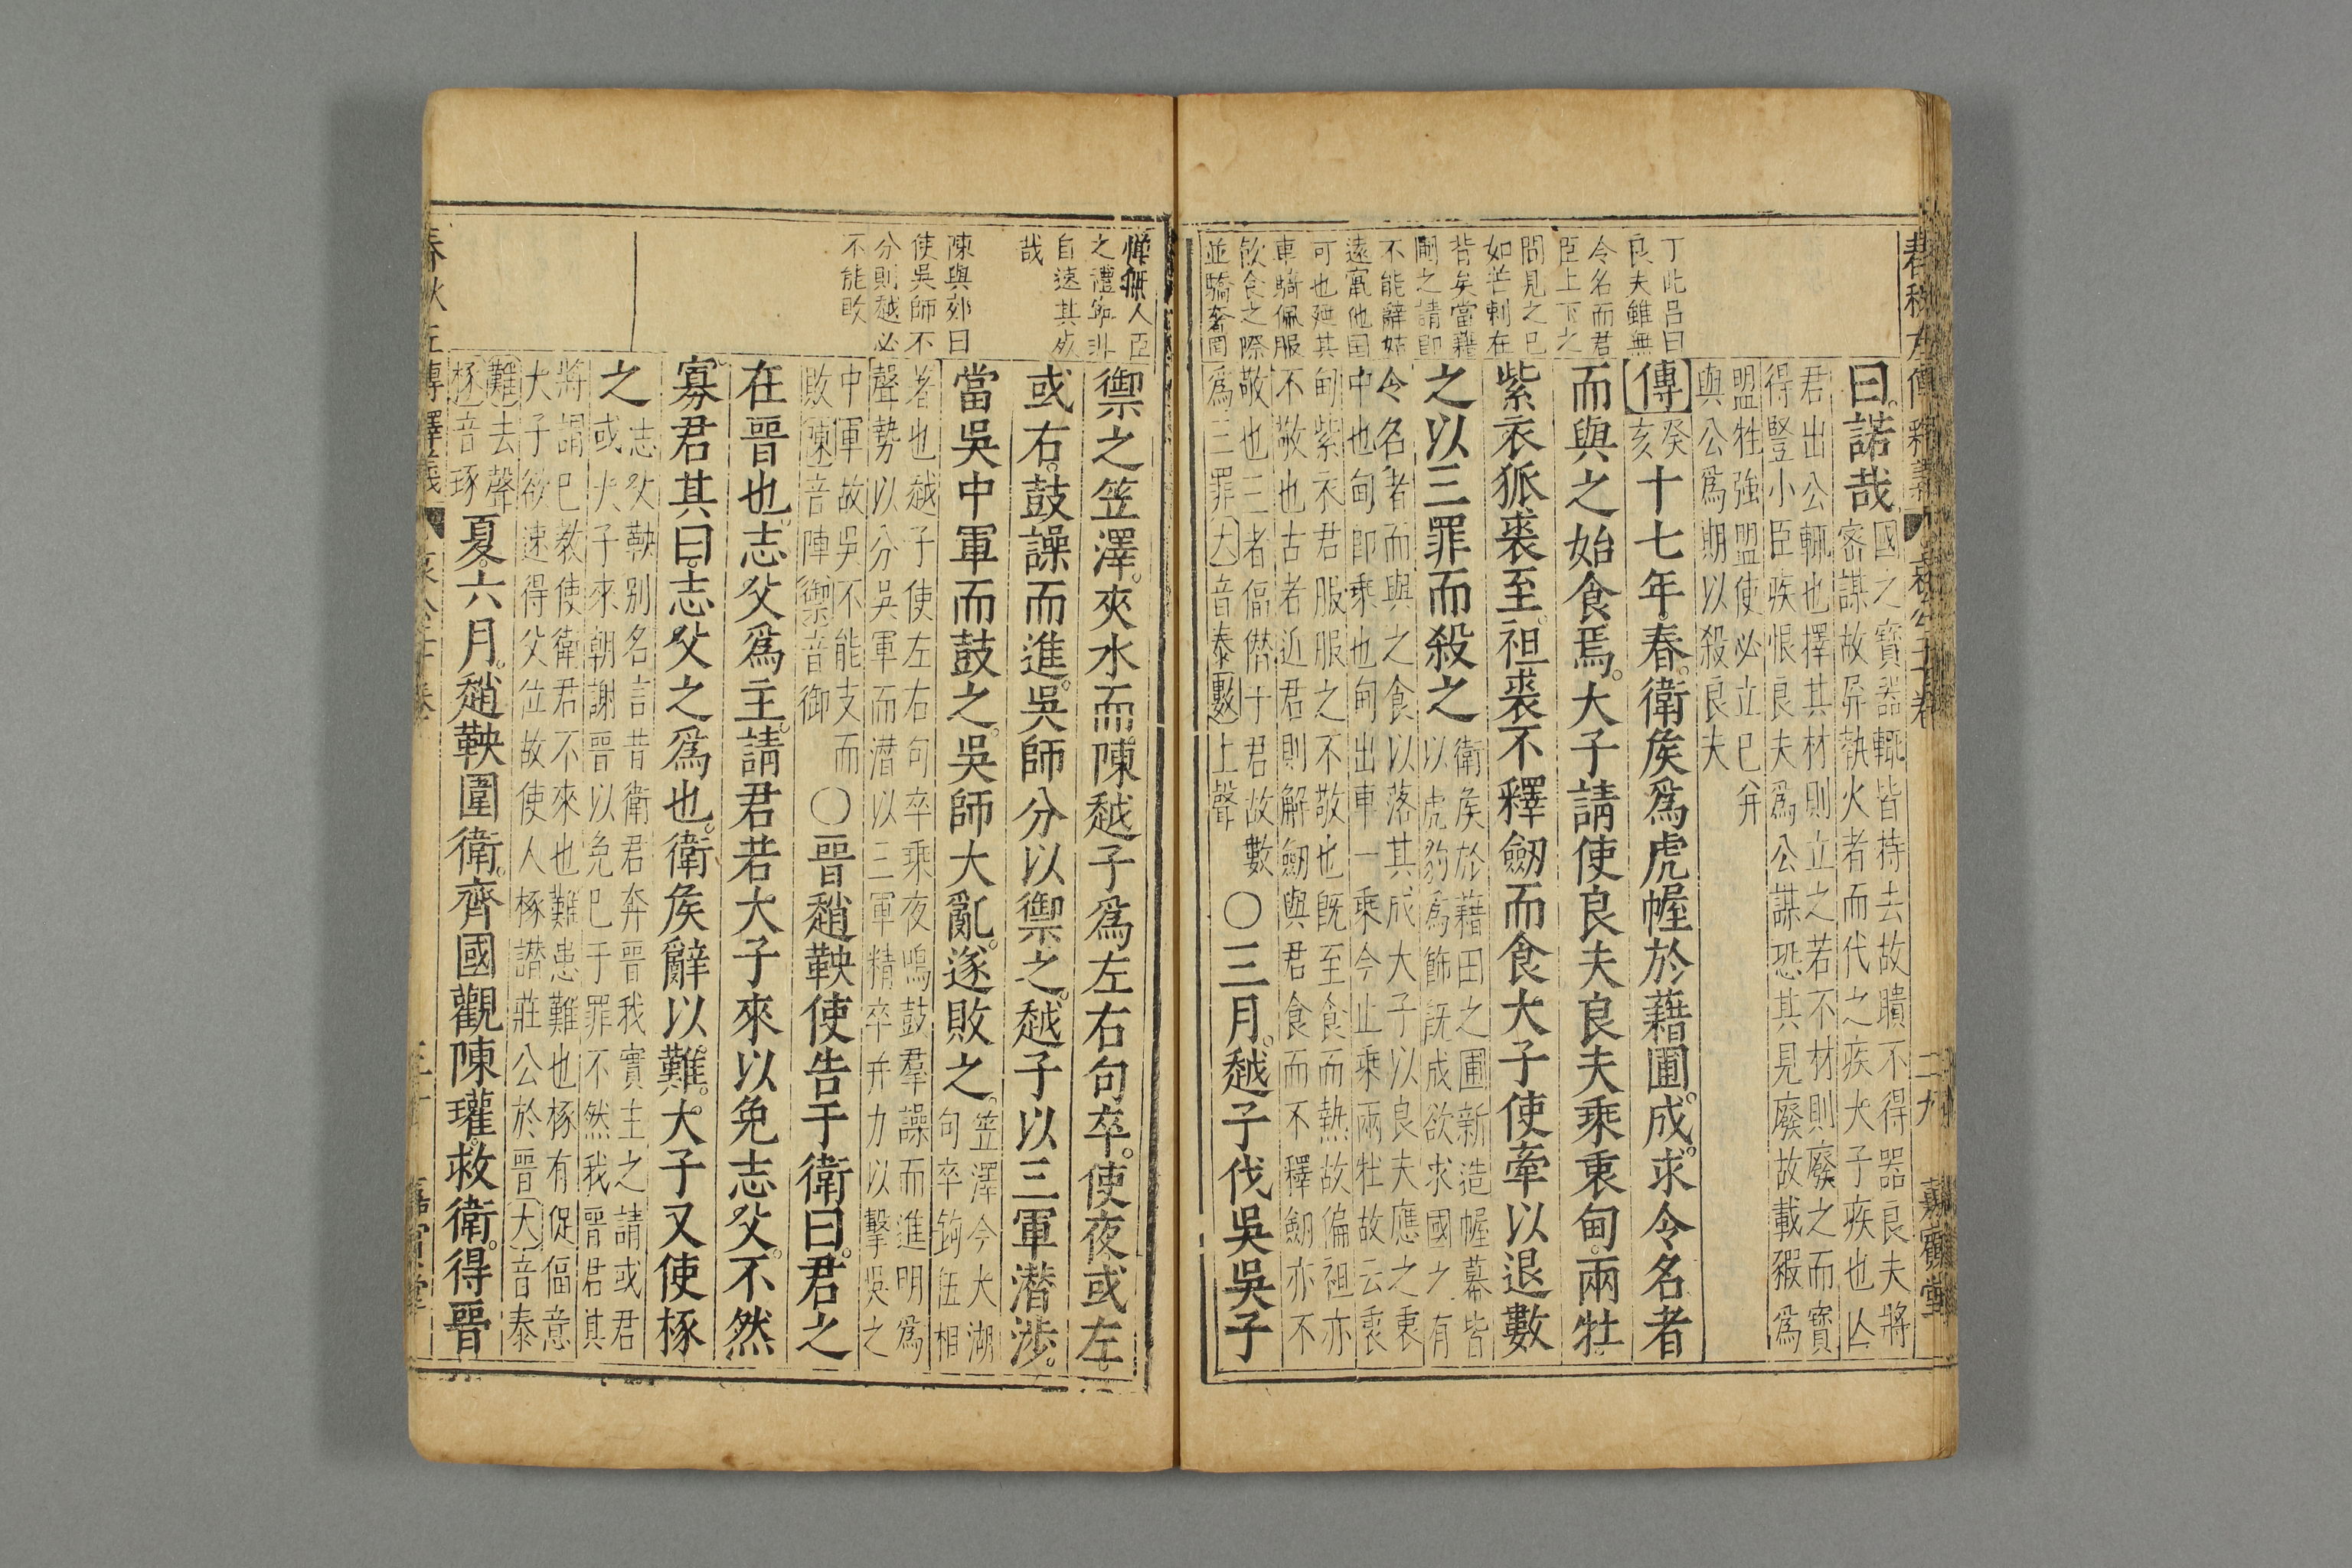 春秋左傳釋義
二九
嘉賓堂
丁此呂曰
良夫雖無
令名而君
臣上下之
間見之已
如芒刺在
背矣當藉
圃之請即
不能辭姑
遠竄他國
可也廼其
車騎佩服
飲食之際
並驕奢罔
曰諾哉
國之寶器輒皆持去故聵不得器良夫將
密謀故屏執火者而代之疾大子疾也亾
君出公輒也擇其材則立之若不材則廢之而寶
得豎小臣疾恨良夫爲公謀恐其見廢故載豭爲
盟牲強盟使必立已并
與公爲期以殺良夫
傳癸亥十七年春。衛矦爲虎幄於藉圃成。求令名者
而與之始食焉。大子請使良夫良夫乘衷甸兩牡
紫衣狐裘至。袒裘不釋劒而食大子使牽以退數
之以三罪而殺之
衛矦於藉田之圃新造幄幕皆
以虎豹爲飾旣成欲求國之有
令名者而與之食以落其成大子以良夫應之衷
中也甸卽乘也甸出車一乘今止乘兩牡故云衷
甸紫衣君服服之不敬也旣至食而熱故偏袒亦
不敬也古者近君則解劒與君食而不釋劒亦不
敬也三者偪僭于君故數
爲三罪大音泰數上聲
〇三月。越子伐吳吳子
憚無人臣
之禮寧非
自速其死
哉
陳與郊曰
使吳師不
分則越必
不能敗
禦之笠澤。夾水而陳越子爲左右句卒。使夜或左。
或右。鼓譟而進。吳師分以禦之。越子以三軍潛涉。
當吳中軍而鼓之。吳師大亂。遂敗之。
笠澤今大湖
句卒鉤伍相
著也越子使左右句卒乘夜鳴鼓羣譟而進明爲
聲勢以分吳軍而潛以三軍精卒并力以擊吳之
中軍故吳不能支而
敗陳音陣禦音御
〇晉趙鞅使告于衛曰。君之
在晉也。志父爲主。請君若大子來以免志父。不然
寡君其曰。志父之爲也。衛矦辭以難。大子又使椓
之
志父鞅別名言昔衛君奔晉我實主之請或君
或大子來朝謝晉以免巳于罪不然我晉君其
將謂巳教使衛君不來也難患難也椓有促偪意
大子欲速得父位故使人椓譖莊公於晉大音泰
難去聲
椓音琢
夏。六月。趙鞅圍衛。齊國觀陳瓘。救衛。得晉